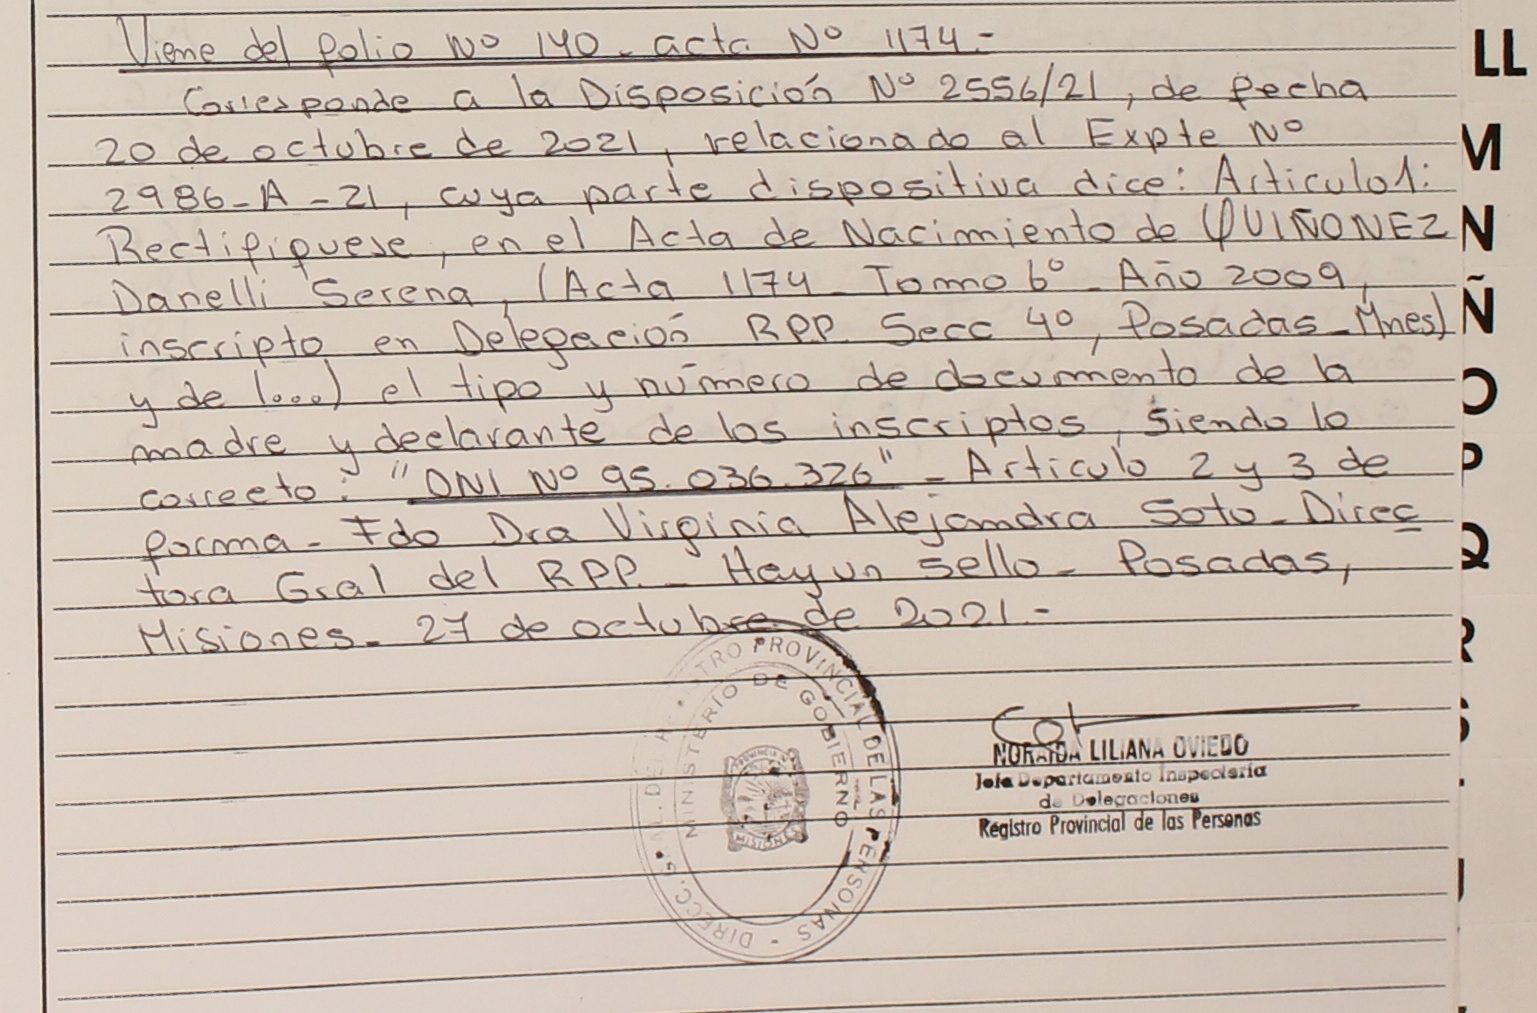 Viene del folio Nº 140 - acta Nº 1174.-
Corresponde a la Disposición Nº 2556/21, de fecha
20 de octubre de 2021, relacionado al Expte Nº
2986-A-21, cuya parte dispositiva dice: Articulo 1:
Rectifiquese, en el Acta de Nacimiento de QUIÑONEZ
Danelli Serena, (Acta 1174 - Tomo 6º - Año 2009,
inscripto en Delegación RPP. Secc 4º, Posadas - Mnes)
y de (...) el tipo y número de documento de la
madre y declarante de los inscriptos, siendo lo
correcto: "DNI Nº 95.036.326" - Articulo 2 y 3 de
forma - Fdo Dra Virginia Alejandra Soto - Direc
tora Gral del RPP. - Hay un sello - Posadas,
Misiones - 27 de octubre de 2021.-
PROVINCIAL DE LAS PERSONAS - DIRECC.
MINISTERIO DE GOBIERNO
MISIONES
NORAIDA LILIANA OVIEDO
Jefa Departamento Inspectoría
de Delegaciones
Registro Provincial de las Personas
LL
M
N
Ñ
O
P
Q
R
S